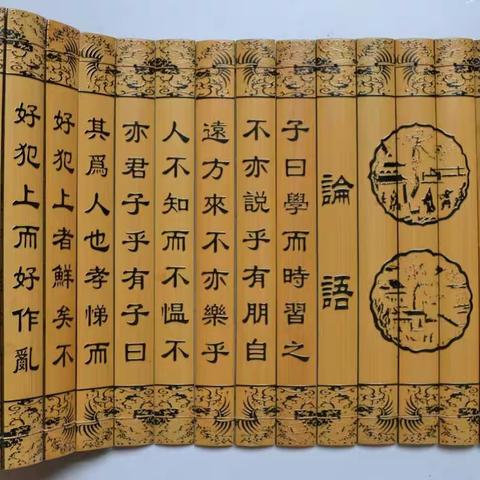 論語
子曰學而時習之
不亦説乎有朋自
遠方來不亦樂乎
人不知而不慍不
亦君子乎有子曰
其爲人也孝悌而
好犯上者鮮矣不
好犯上而好作亂